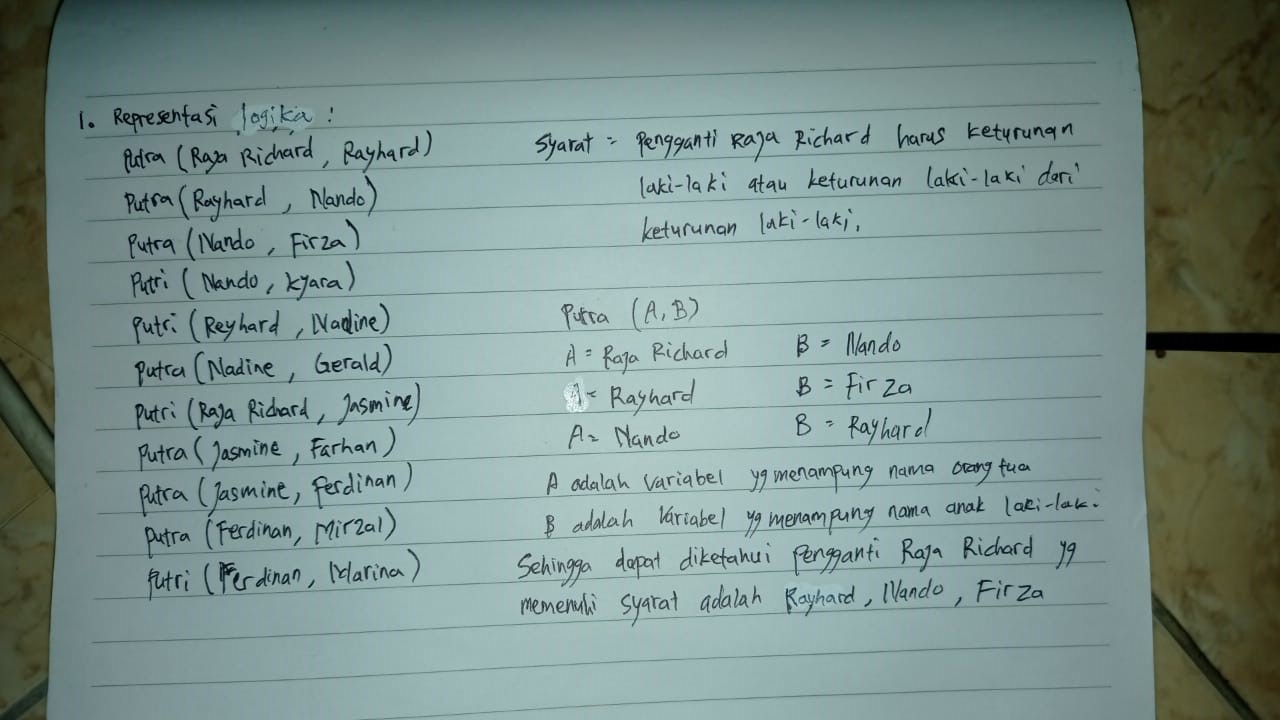 1. Representasi logika :
Putra (Raja Richard, Rayhard)
Putra (Rayhard, Nando)
Putra (Nando, Firza)
Putri (Nando, Kyara)
Putri (Reyhard, Nadine)
Putra (Nadine, Gerald)
Putri (Raja Richard, Jasmine)
Putra (Jasmine, Farhan)
Putra (Jasmine, Ferdinan)
Putra (Ferdinan, Mirzal)
Putri (Ferdinan, Marina)
Syarat = Pengganti Raja Richard harus keturunan
laki-laki atau keturunan laki-laki dari
keturunan laki-laki.
Putra (A, B)
A = Raja Richard B = Nando
A = Rayhard B = Firza
A = Nando B = Rayhard
A adalah variabel yg menampung nama orang tua
B adalah variabel yg menampung nama anak laki-laki.
Sehingga dapat diketahui pengganti Raja Richard yg
memenuhi syarat adalah Rayhard, Nando, Firza